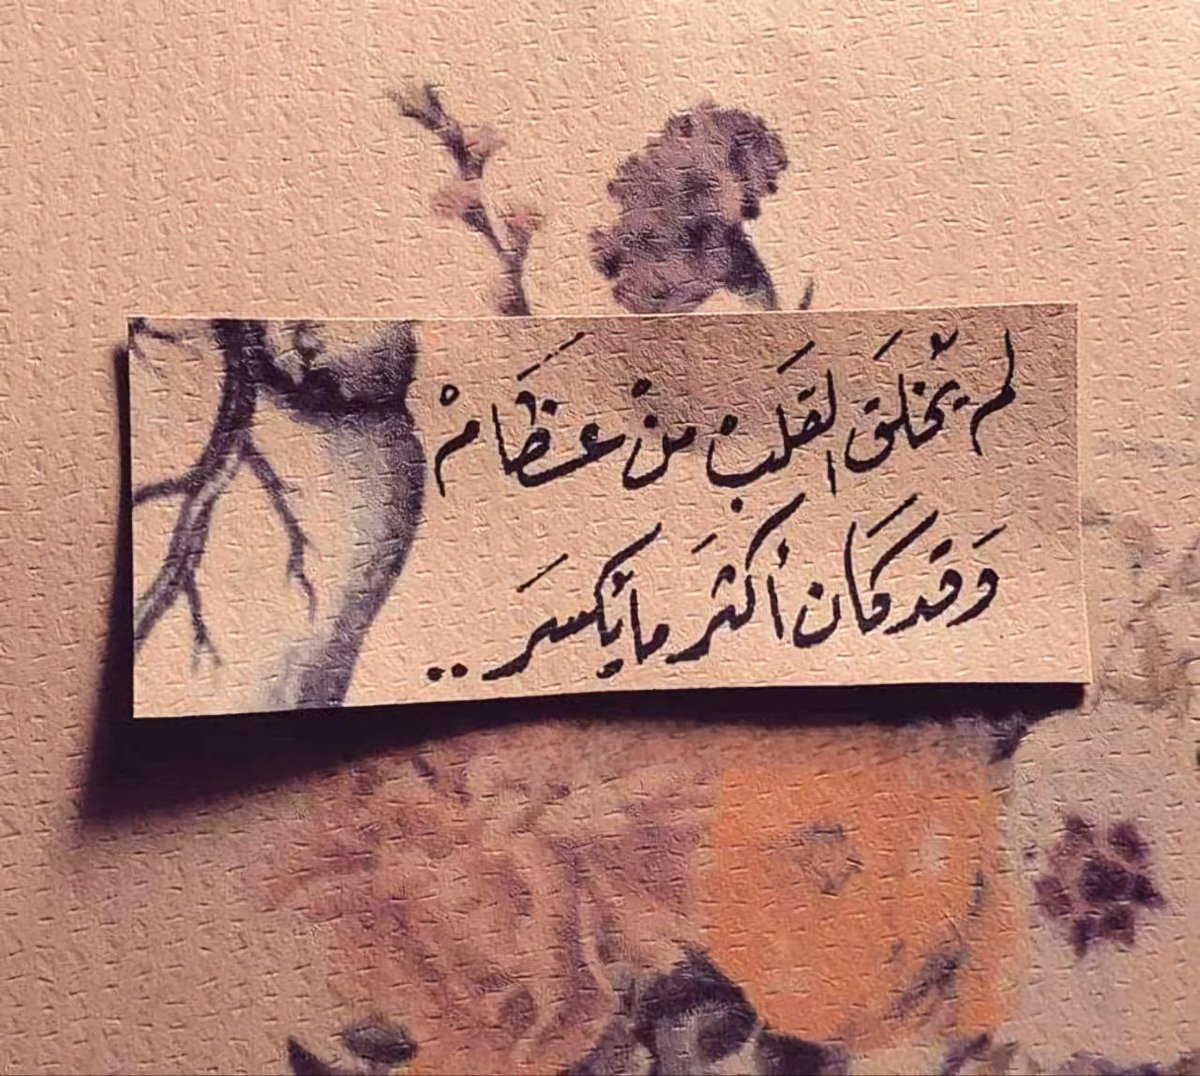 لم يُخلَق القَلبْ منْ عَظَامْ
وَقد كَان أكثَر ما يُكسَر ..